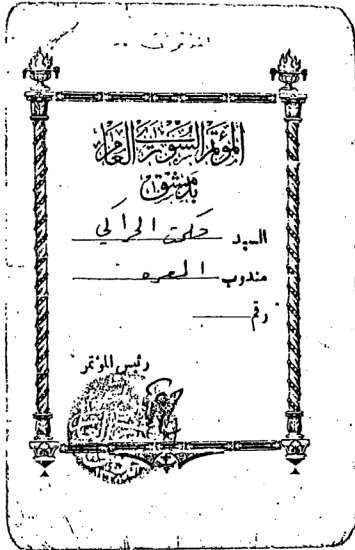 المؤتمر السوري العام
بدمشق
السيد حكمت الحراكي
مندوب المعره
رقم
رئيس المؤتمر